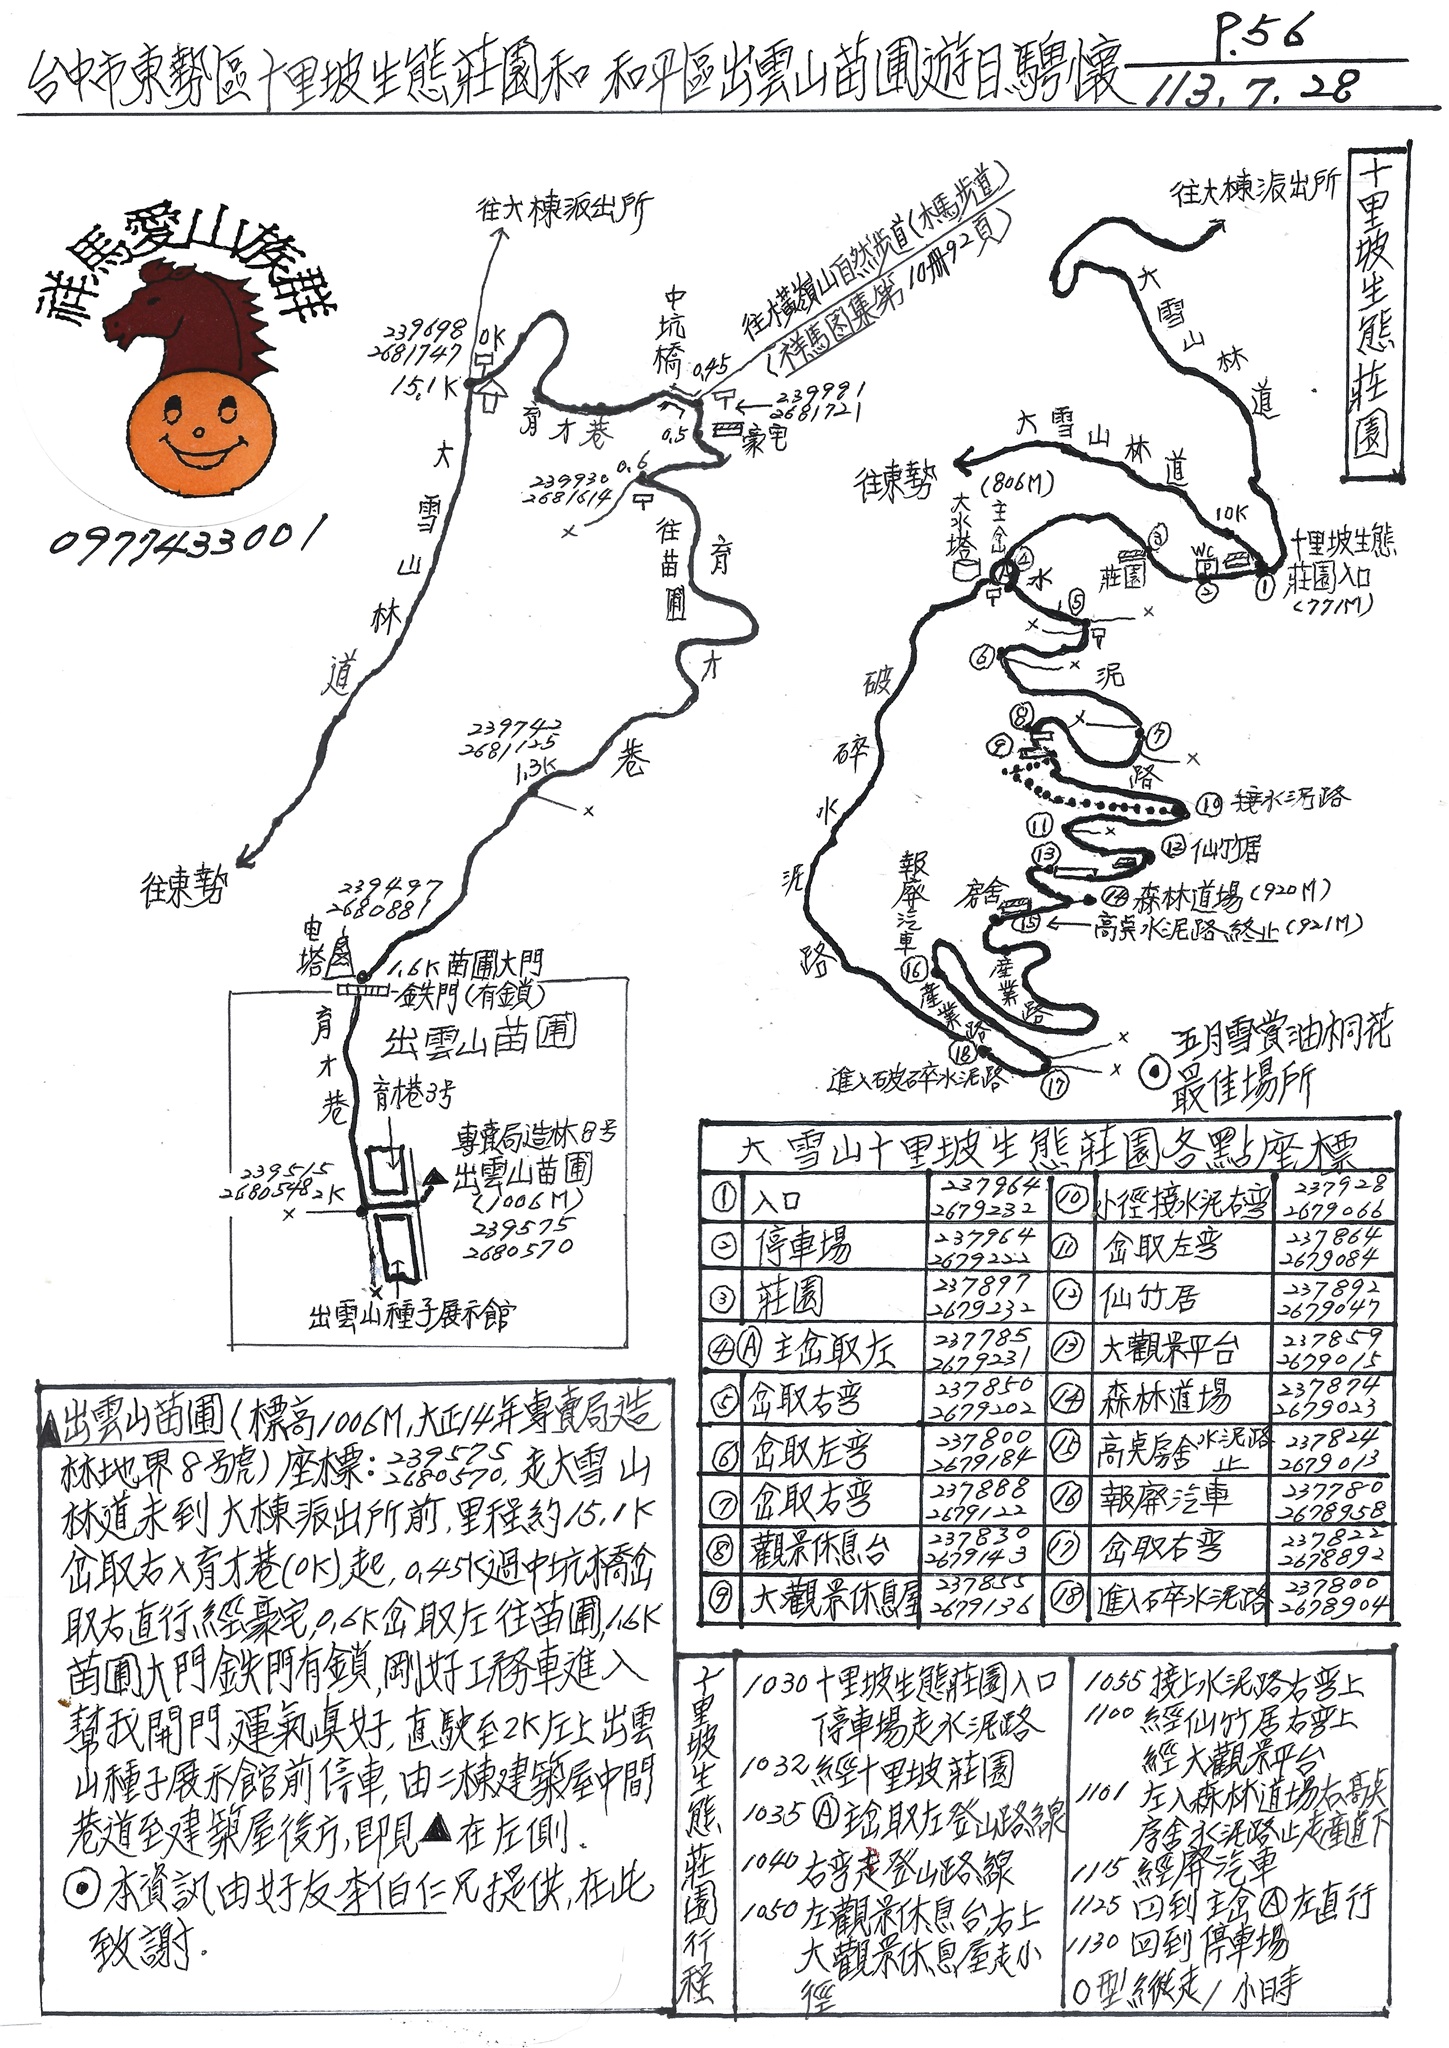 台中市東勢區十里坡生態莊園和 和平區出雲山苗圃遊目騁懷
P.56
113.7.28
祥馬愛山族群
0977433001
往大棟派出所
239698
2681747
0K
15.1K
大雪山林道
往東勢
育才巷
中坑橋
0.45
0.5
往橫嶺山自然步道(木馬步道)
(祥馬图集第10册92頁)
239981
2681721
豪宅
0.6
239930
2681614
往苗圃
育才巷
239742
2681125
1.3K
239497
2680881
电塔
1.6K 苗圃大門
鉄門(有鎖)
育才巷
出雲山苗圃
育才巷3号
專賣局造林8号
出雲山苗圃
(1006M)
239575
2680570
239515
2680548
2K
出雲山種子展示館
十里坡生態莊園
往大棟派出所
大雪山林道
大雪山林道
往東勢
10K
(806M)
主岔
大水塔
A
④
水泥路
③
莊園
WC
P
②
①
十里坡生態
莊園入口
(771M)
⑤
⑥
⑦
⑧
⑨
⑩ 接水泥路
⑪
⑫ 仙竹居
⑬
⑭ 森林道場(920M)
房舍
⑮
高桌水泥路終止(921M)
破碎水泥路
報廢汽車
⑯
產業路
產業路
⑱
進入破碎水泥路
⑰
⊙ 五月雪賞油桐花
最佳場所
大雪山十里坡生態莊園各點座標
① 入口 237964 2679232 ⑩ 小徑接水泥右弯 237928 2679066
② 停車場 237964 2679222 ⑪ 岔取左弯 237864 2679084
③ 莊園 237897 2679232 ⑫ 仙竹居 237892 2679047
④Ⓐ 主岔取左 237785 2679231 ⑬ 大觀景平台 237859 2679015
⑤ 岔取右弯 237850 2679202 ⑭ 森林道場 237874 2679023
⑥ 岔取左弯 237800 2679184 ⑮ 高桌房舍水泥路止 237824 2679013
⑦ 岔取右弯 237888 2679122 ⑯ 報廢汽車 237780 2678958
⑧ 觀景休息台 237830 2679143 ⑰ 岔取右弯 237822 2678892
⑨ 大觀景休息屋 237855 2679136 ⑱ 進入碎水泥路 237800 2678904
▲出雲山苗圃(標高1006M,大正14年專賣局造
林地界8号虎)座標:239575 2680570,走大雪山
林道未到大棟派出所前,里程約15.1K
岔取右入育才巷(0K)起,0.45K過中坑橋岔
取右直行經豪宅,0.6K岔取左往苗圃,1.6K
苗圃大門鉄門有鎖,剛好工務車進入
幫我開門,運氣真好,直駛至2K左上出雲
山種子展示館前停車,由二棟建築屋中間
巷道至建築屋後方,即見▲在左側.
⊙本資訊由好友李伯仁兄提供,在此
致謝.
十里坡生態莊園行程
1030 十里坡生態莊園入口
停車場走水泥路
1032 經十里坡莊園
1035 Ⓐ主岔取左登山路線
1040 右弯走登山路線
1050 左觀景休息台,右上
大觀景休息屋走小
徑
1055 接上水泥路右弯上
1100 經仙竹居右弯上
經大觀景平台
1101 左入森林道場右高桌
房舍水泥路止走產道下
1115 經廢汽車
1125 回到主岔Ⓐ左直行
1130 回到停車場
O型縱走1小時